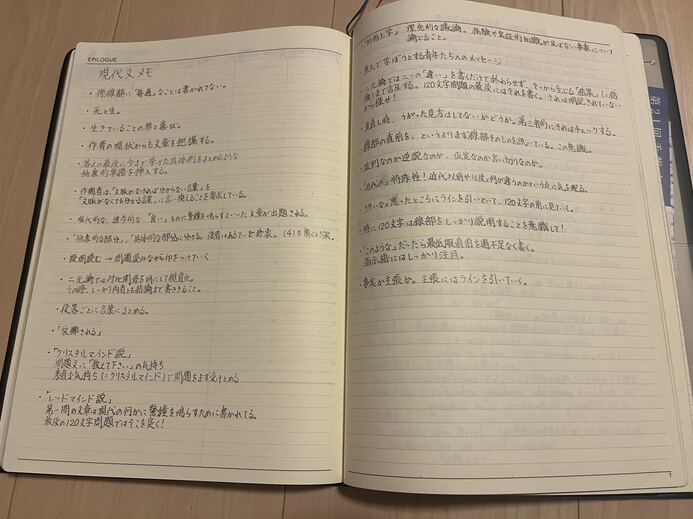 EPILOGUE
現代文メモ
・傍線部に「普遍」なことは書かれてない。
・死と生。
・生きていることの罪と喜び。
・作者の現状からも文章を把握する。
・答えの最後に今まで挙げた具体例をまとめるような
抽象的単語を挿入する。
・作問者は、「文脈がなければ分からない言葉」を
「文脈がなくても分かる言葉」に言い換えることを要求している。
・現代的な、進歩的な、「良い」ものに警鐘を鳴らすといった文章が出題される。
・「抽象的な部分」、「具体的な部分」に分ける。
・設問読む→問題読みながら印をつけていく
・二元論では対比関係を明にして視覚化。
その際、しっかり両者とも結論まで書ききること。
・段落ごとに言葉にまとめる。
・「交響される」
・「クリスタルマインド説」
問題文に「教えて下さい」の気持ち
素直な気持ち(=クリスタルマインド)で問題をまず受けとめる
・「レッドマインド説」
第一問の文章は現代の何かに警鐘を鳴らすために書かれてる。
最後の120文字問題ではそこを突く!
・「形而上学」 理念的な議論。体験や実証的知識が及ばない事象について
論じること。
・東大で学ぼうとする青年たちへのメッセージ
・二元論では二つの「違い」を書くだけで終わらせず、そっから生じる「結果」(=結
論)まで言及する。120文字問題の最後にはそれを書く。それは明記されていない
から探せ!
・見直し時、うがった見方はしてないかどうか。第三者的にそれはチェックする。
・傍線部の直前を、というよりまず傍線部そのものを読んでいる。この意識。
・批判なのか逆説なのか、仮定なのか言い切りなのか。
・「近代の」特殊性!近代以前や以後と何が違うのかという点に気を配る。
・うザいなと思ったところにラインを引いといて、120文字の前に見ていく。
・特に120文字は線部をしっかり説明することを意識して!
・「このような」だったら最低限直前を過不足なく書く。
指示語にはしっかり注目。
・事実か主張か。主張にはラインを引いていく。
1
第21回